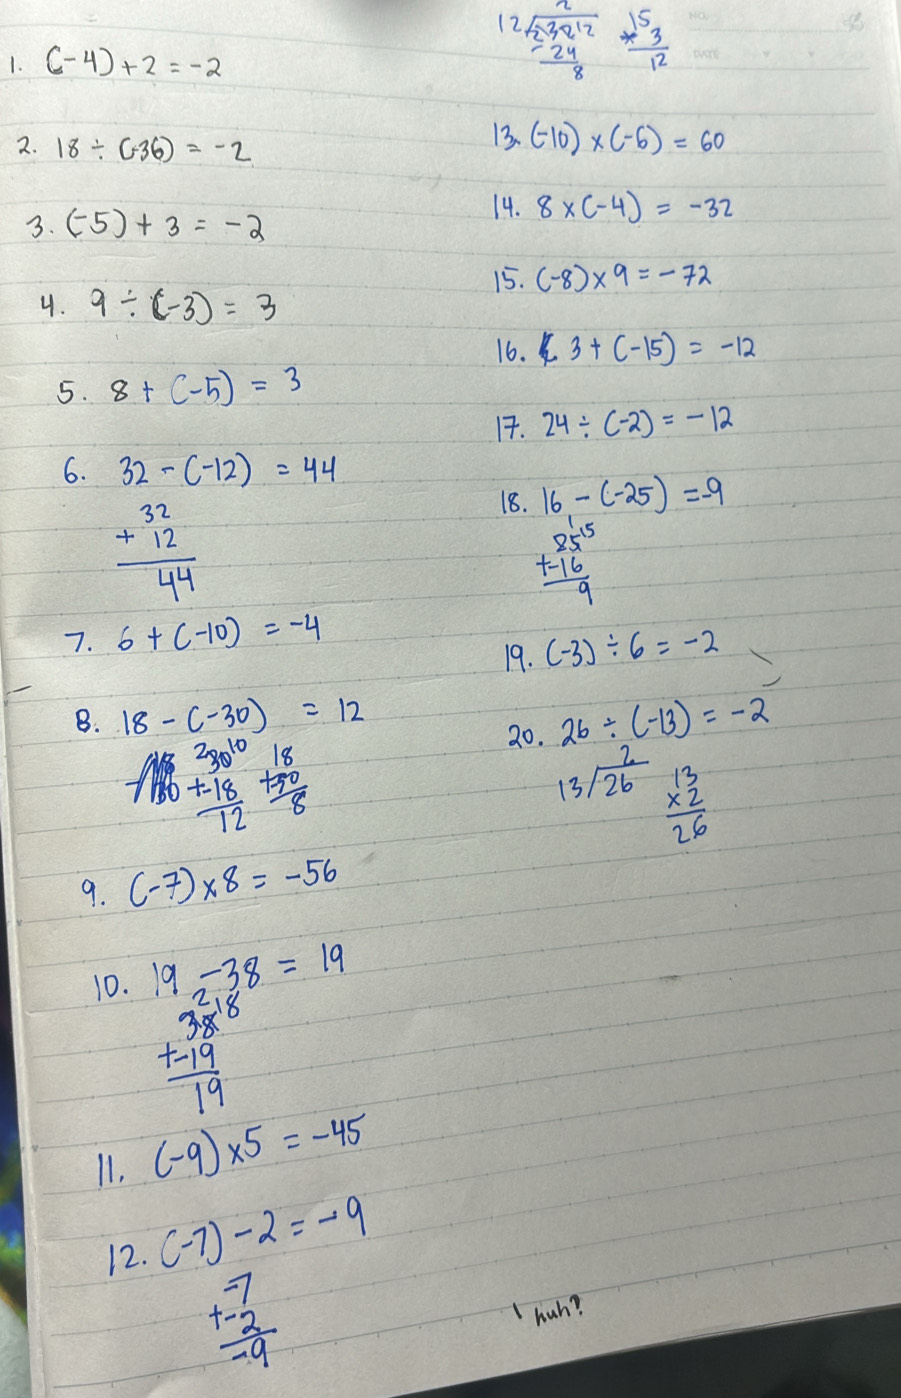 1. (-4) + 2 = -2
2. 18 ÷ (-36) = -2
3. (-5) + 3 = -2
4. 9 ÷ (-3) = 3
5. 8 + (-5) = 3
6. 32 - (-12) = 44
32
+ 12
44
7. 6 + (-10) = -4
8. 18 - (-30) = 12
2 30 10
+-18
12
18
8
9. (-7) × 8 = -56
10. 19 - 38 = 19
2
38 18
+-19
19
11. (-9) × 5 = -45
12. (-7) - 2 = -9
-7
+-2
-9
2
12
-24
8
15
3
12
NO.
DATE
13. (-10) × (-6) = 60
14. 8 × (-4) = -32
15. (-8) × 9 = -72
16. 3 + (-15) = -12
17. 24 ÷ (-2) = -12
18. 16 - (-25) = -9
1
15
+-16
9
19. (-3) ÷ 6 = -2
20. 26 ÷ (-13) = -2
2
13 26
13
×2
26
huh?